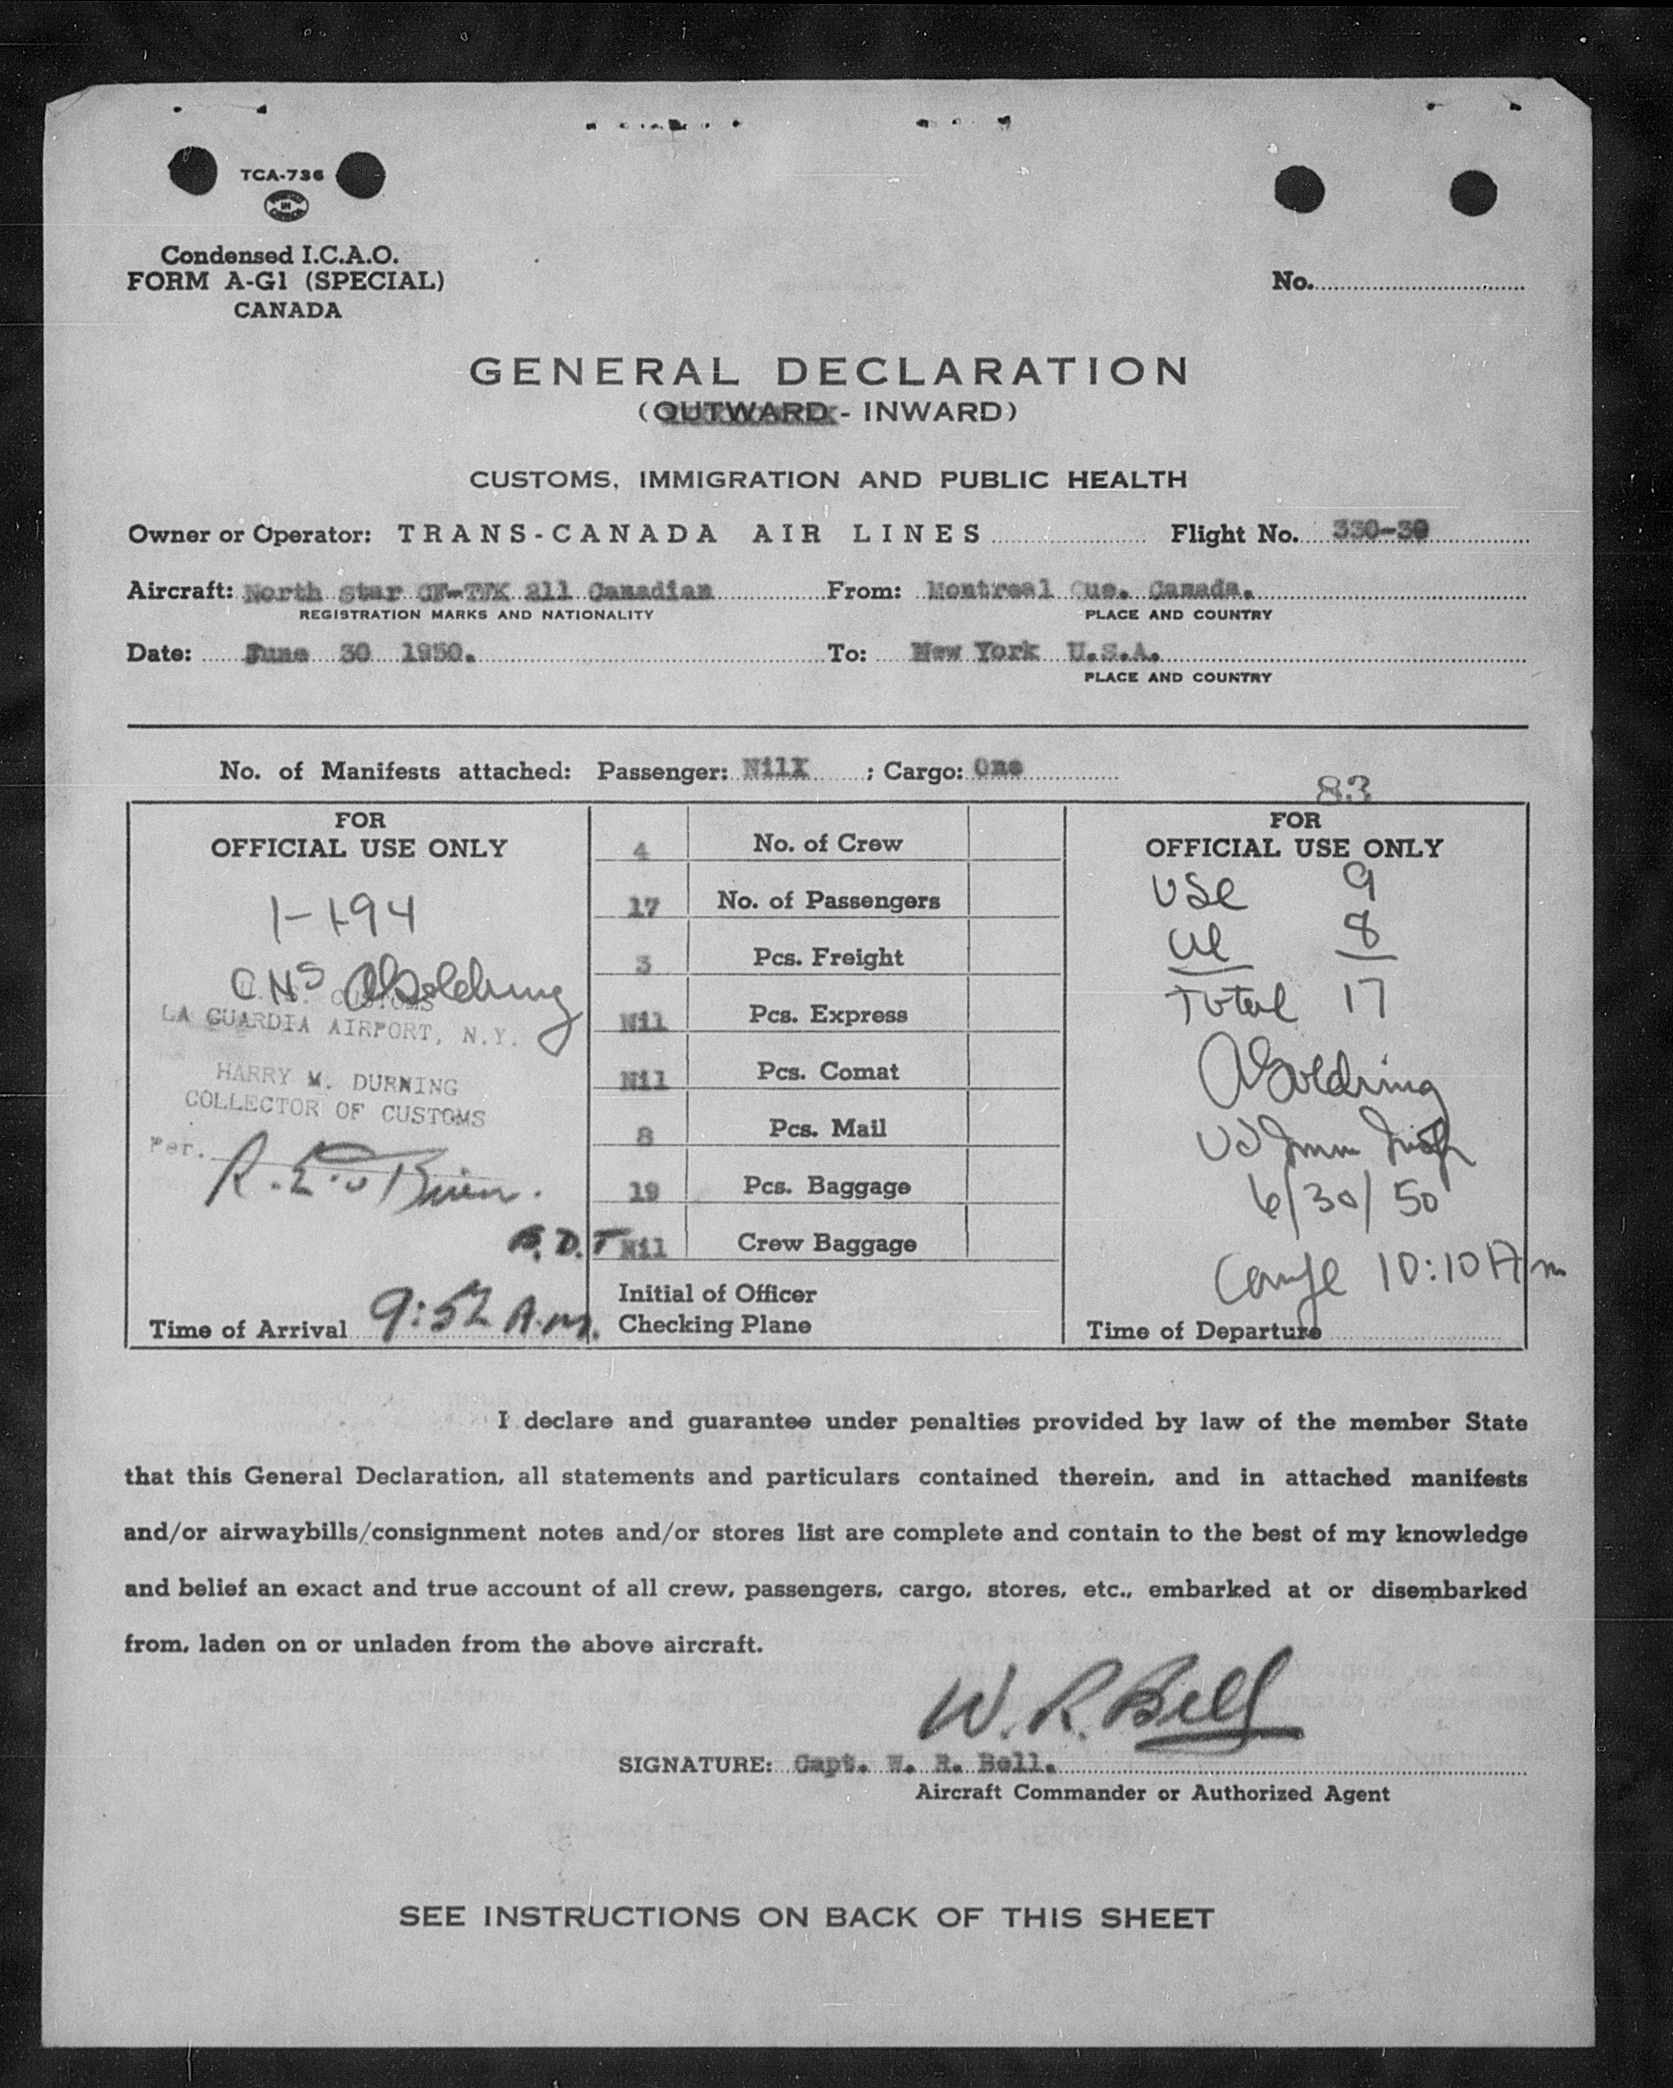 TCA-736
Condensed I.C.A.O.
FORM A-G1 (SPECIAL)
CANADA
No.
GENERAL DECLARATION
(OUTWARD - INWARD)
CUSTOMS, IMMIGRATION AND PUBLIC HEALTH
Owner or Operator: TRANS-CANADA AIR LINES Flight No. 330-30
Aircraft: North Star CF-TFK 211 Canadian From: Montreal Que. Canada.
REGISTRATION MARKS AND NATIONALITY PLACE AND COUNTRY
Date: June 30 1950. To: New York U.S.A.
PLACE AND COUNTRY
No. of Manifests attached: Passenger: Nil ; Cargo: One
83
FOR
OFFICIAL USE ONLY
1-194
U.S. CUSTOMS
LA GUARDIA AIRPORT, N.Y.
HARRY M. DURNING
COLLECTOR OF CUSTOMS
Per. R. E. O'Brien.
Time of Arrival 9:52 A.m.
4 No. of Crew
17 No. of Passengers
3 Pcs. Freight
Nil Pcs. Express
Nil Pcs. Comat
8 Pcs. Mail
19 Pcs. Baggage
Nil Crew Baggage
Initial of Officer
Checking Plane
FOR
OFFICIAL USE ONLY
USC 9
UC 8
Total 17
AGoldring
US Imm Insp
6/30/50
10:10 Am
Time of Departure
I declare and guarantee under penalties provided by law of the member State
that this General Declaration, all statements and particulars contained therein, and in attached manifests
and/or airwaybills/consignment notes and/or stores list are complete and contain to the best of my knowledge
and belief an exact and true account of all crew, passengers, cargo, stores, etc., embarked at or disembarked
from, laden on or unladen from the above aircraft.
W. R. Bell
SIGNATURE: Capt. W. R. Bell.
Aircraft Commander or Authorized Agent
SEE INSTRUCTIONS ON BACK OF THIS SHEET